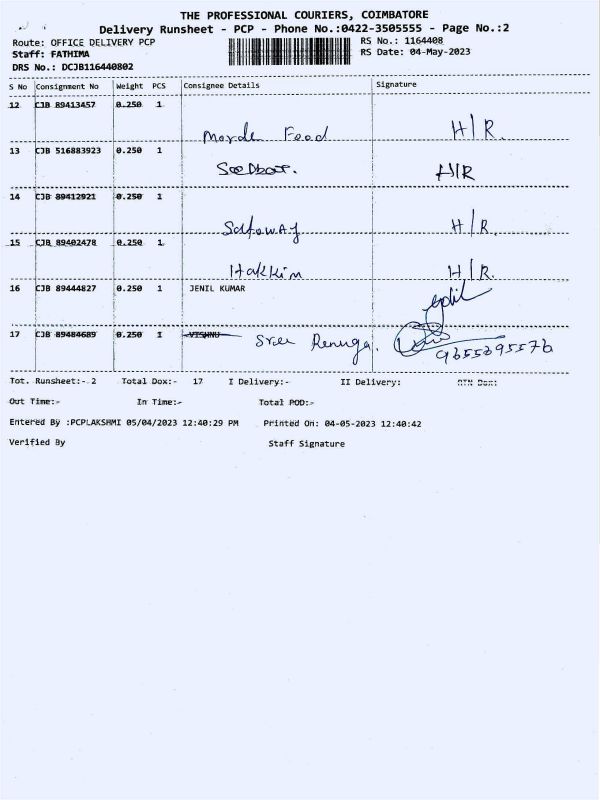 THE PROFESSIONAL COURIERS, COIMBATORE
Delivery Runsheet - PCP - Phone No.:0422-3505555 - Page No.:2
Route: OFFICE DELIVERY PCP RS No.: 1164408
Staff: FATHIMA RS Date: 04-May-2023
DRS No.: DCJB116440802
S No Consignment No Weight PCS Consignee Details Signature
12 CJB 89413457 0.250 1
Morde Food H/R.
13 CJB 516883923 0.250 1
H/R
14 CJB 89412921 0.250 1
H/R.
15 CJB 89402478 0.250 1
Hakkim H/R.
16 CJB 89444827 0.250 1 JENIL KUMAR
17 CJB 89484689 0.250 1 VISHNU Sree Renuga.
9655295576
Tot. Runsheet:- 2 Total Dox:- 17 I Delivery:- II Delivery:
Out Time:- In Time:- Total POD:-
Entered By :PCPLAKSHMI 05/04/2023 12:40:29 PM Printed On: 04-05-2023 12:40:42
Verified By Staff Signature